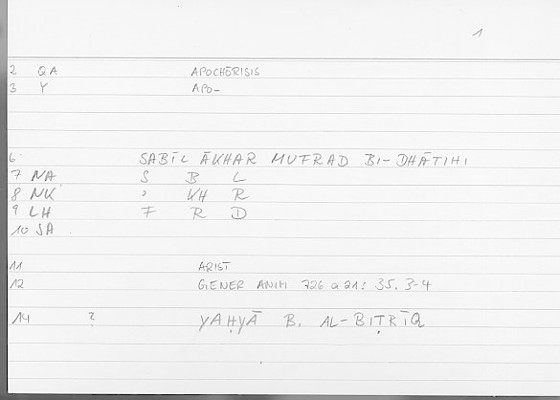 1
2 QA APOCHERISIS
3 Y APO-
6 SABĪL ĀKHAR MUFRAD BI-DHĀTIHI
7 NA S B L
8 NK ʾ KH R
9 LH F R D
10 SA
11 ARIST
12 GENER ANIM 726 a 21: 35. 3-4
14 ? YAḤYĀ B. AL-BIṬRĪQ